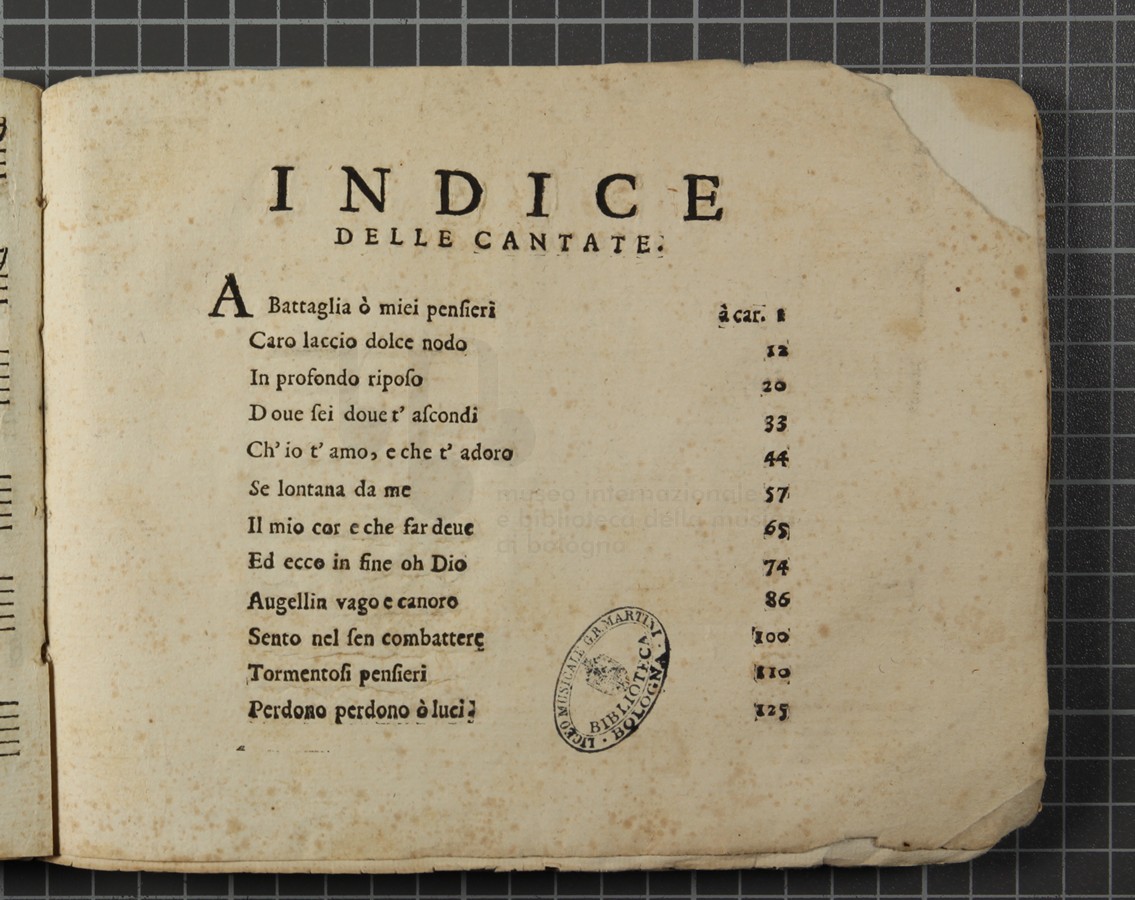 INDICE
DELLE CANTATE.
A Battaglia ò miei penſieri à car. 1
Caro laccio dolce nodo 12
In profondo ripoſo 20
Doue ſei doue t' aſcondi 33
Ch' io t' amo, e che t' adoro 44
Se lontana da me 57
Il mio cor e che far deue 65
Ed ecco in fine oh Dio 74
Augellin vago e canoro 86
Sento nel ſen combattere 100
Tormentoſi penſieri 110
Perdono perdono ò luci 125
museo internazionale
e biblioteca della musica
di bologna
LICEO MUSICALE G.B. MARTINI · BOLOGNA ·
BIBLIOTECA